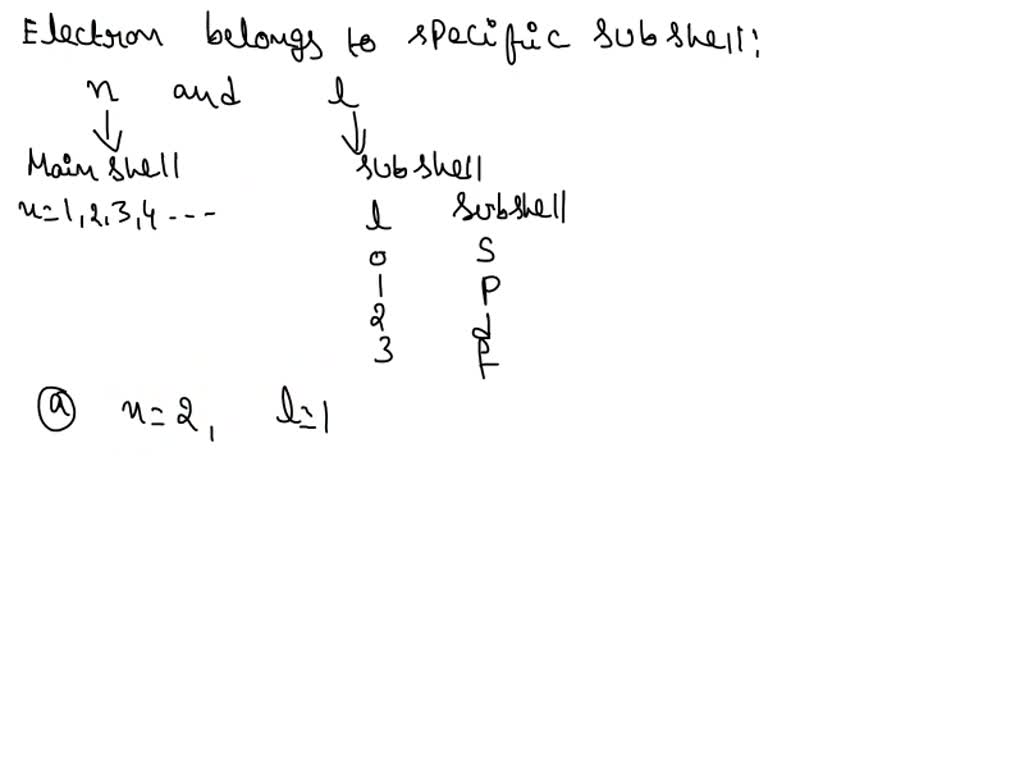 Electron belongs to specific subshell:
n and l
↓ ↓
Main shell subshell
n=1,2,3,4 --- l subshell
0 S
1 P
2 d
3 F
ⓐ n=2, l=1